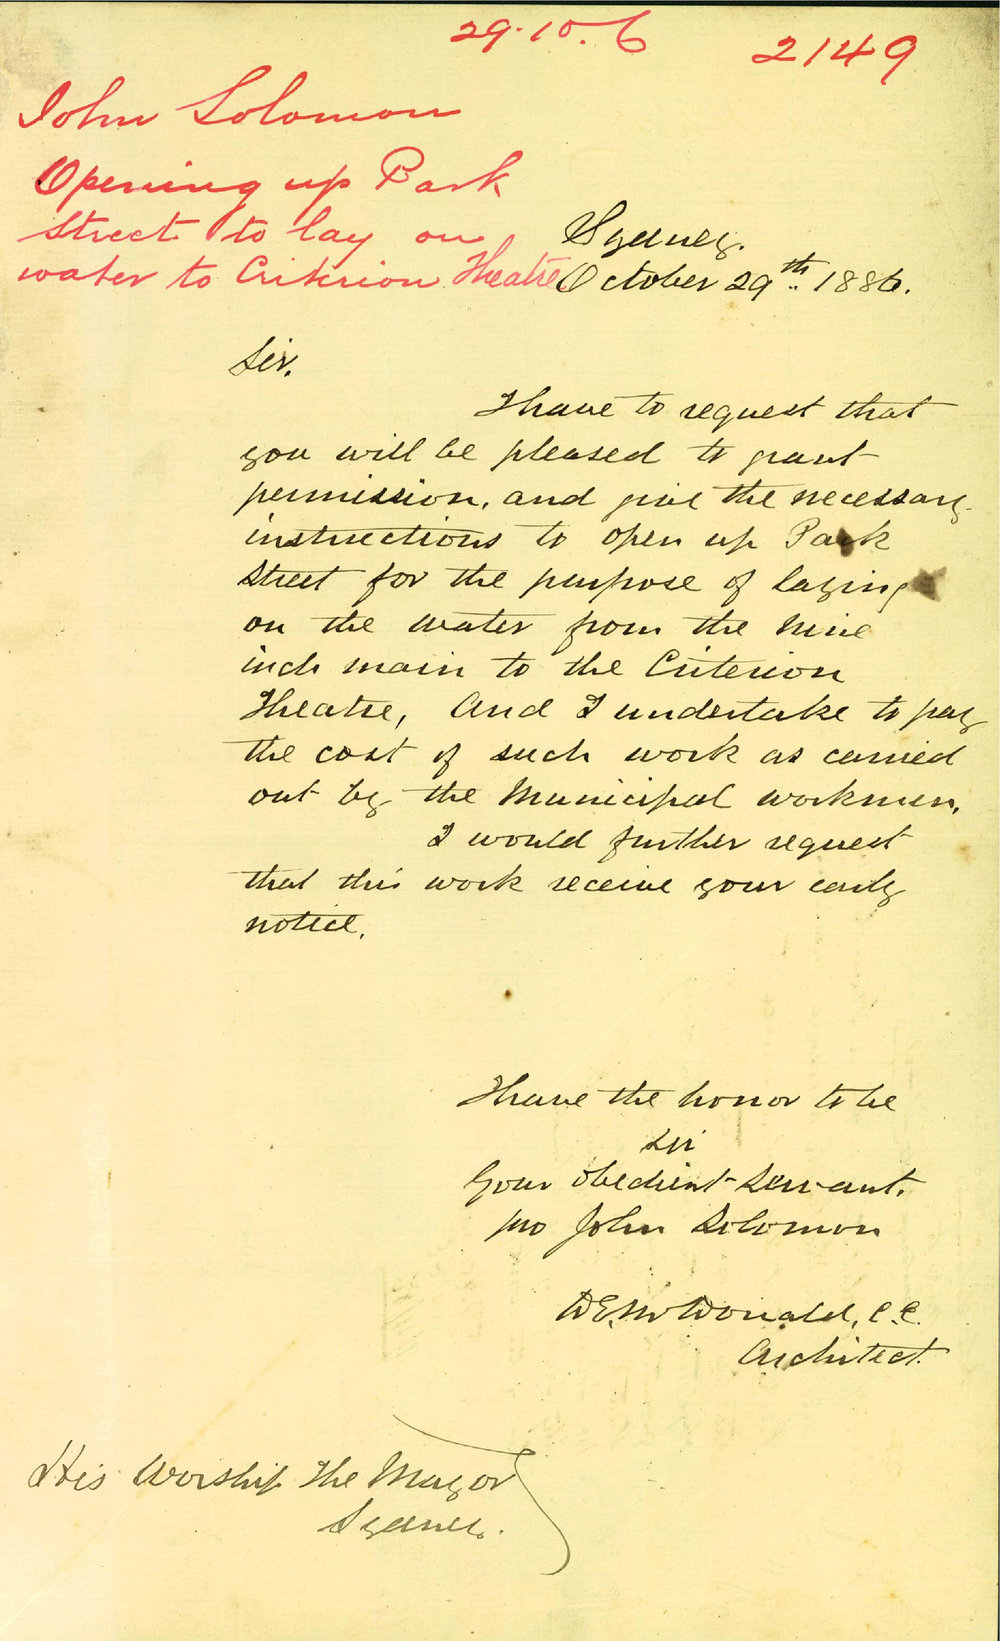 29.10.6
2149
John Solomon
Opening up Park
Street to lay on
water to Criterion Theatre
Sydney.
October 29th. 1886.
Sir.
I have to request that
you will be pleased to grant
permission, and give the necessary
instructions to open up Park
Street for the purpose of laying
on the water from the nine
inch main to the Criterion
Theatre, And I undertake to pay
the cost of such work as carried
out by the Municipal workmen.
I would further request
that this work receive your early
notice.
I have the honor to be
Sir
Your obedient Servant.
pro John Solomon
McDonald, C.E.
Architect.
His Worship The Mayor
Sydney.